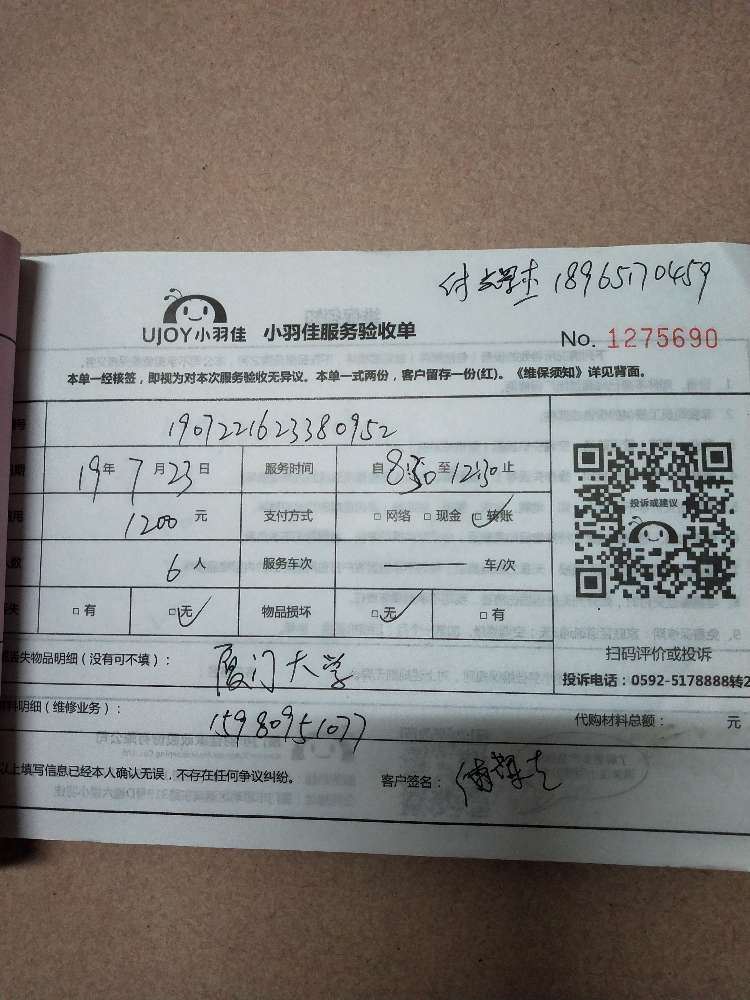 付 18965170459
UJOY小羽佳 小羽佳服务验收单
No. 1275690
本单一经核签,即视为对本次服务验收无异议。本单一式两份,客户留存一份(红)。《维保须知》详见背面。
号 1907221623380952
期 19年7月23日 服务时间 自8:30至12:30止
用 1200元 支付方式 □网络 □现金 □转账
投诉或建议
人数 6人 服务车次 车/次
失 □有 □无 物品损坏 □无 □有
扫码评价或投诉
丢失物品明细(没有可不填): 厦门大学
投诉电话:0592-5178888转2
料明细(维修业务): 15980951077
代购材料总额: 元
以上填写信息已经本人确认无误,不存在任何争议纠纷。 客户签名: